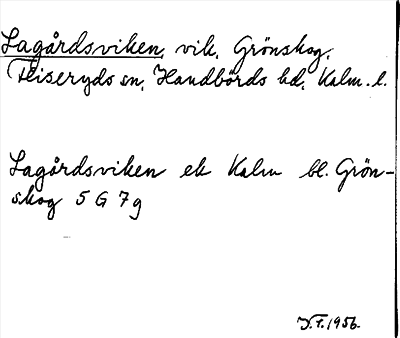 Lagårdsviken, vik, Grönskog,
Fliseryds sn, Handbörds hd, Kalm. l.
Lagårdsviken ek Kalm bl. Grön-
skog 5 G 7 g
V.F. 1956.